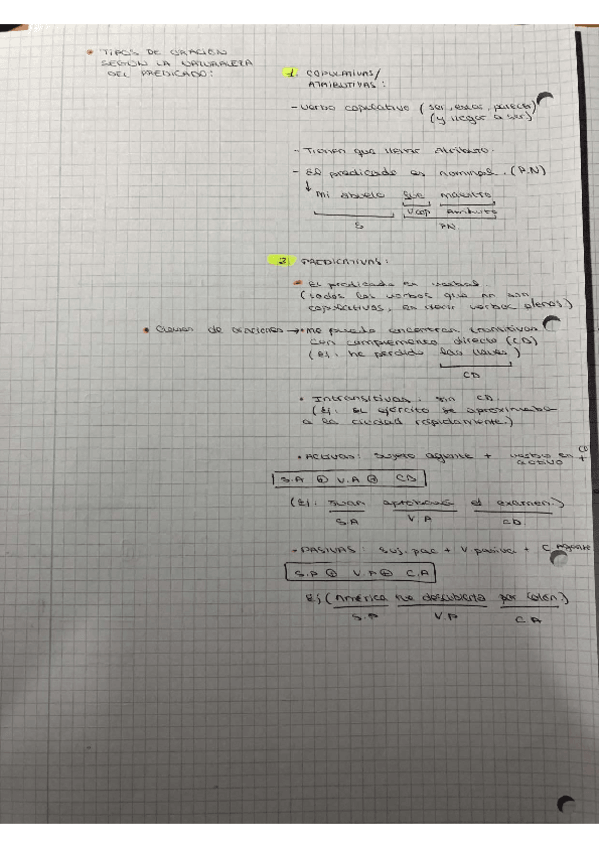 • TIPOS DE ORACIÓN
SEGÚN LA NATURALEZA
DEL PREDICADO:
1. COPULATIVAS/
ATRIBUTIVAS:
- Verbo copulativo (ser, estar, parecer)
(y llegar a ser)
- Tienen que llevar Atributo.
- El predicado es nominal. (P.N)
↓ Mi abuelo fue maestro
V.cop Atributo
S PN
2. PREDICATIVAS:
• El predicado es verbal
(todos los verbos que no son
copulativos, es decir verbos plenos)
• Clases de oraciones → • me puedo encontrar transitivas
con complemento directo (CD)
(Ej: he perdido las llaves)
CD
• Intransitivas. sin CD.
(Ej. El ejército se aproximaba
a la ciudad rápidamente.)
• ACTIVAS: Sujeto agente + verbo en activo + CD
S.A ⊕ V.A ⊕ CD
(Ej. Juan aprobará el examen.)
S.A V.A CD
- PASIVAS: Suj. pac + V. pasiva + C. Agente
S.P ⊕ V.P ⊕ C.A
Ej (América fue descubierta por Colón.)
S.P V.P C.A